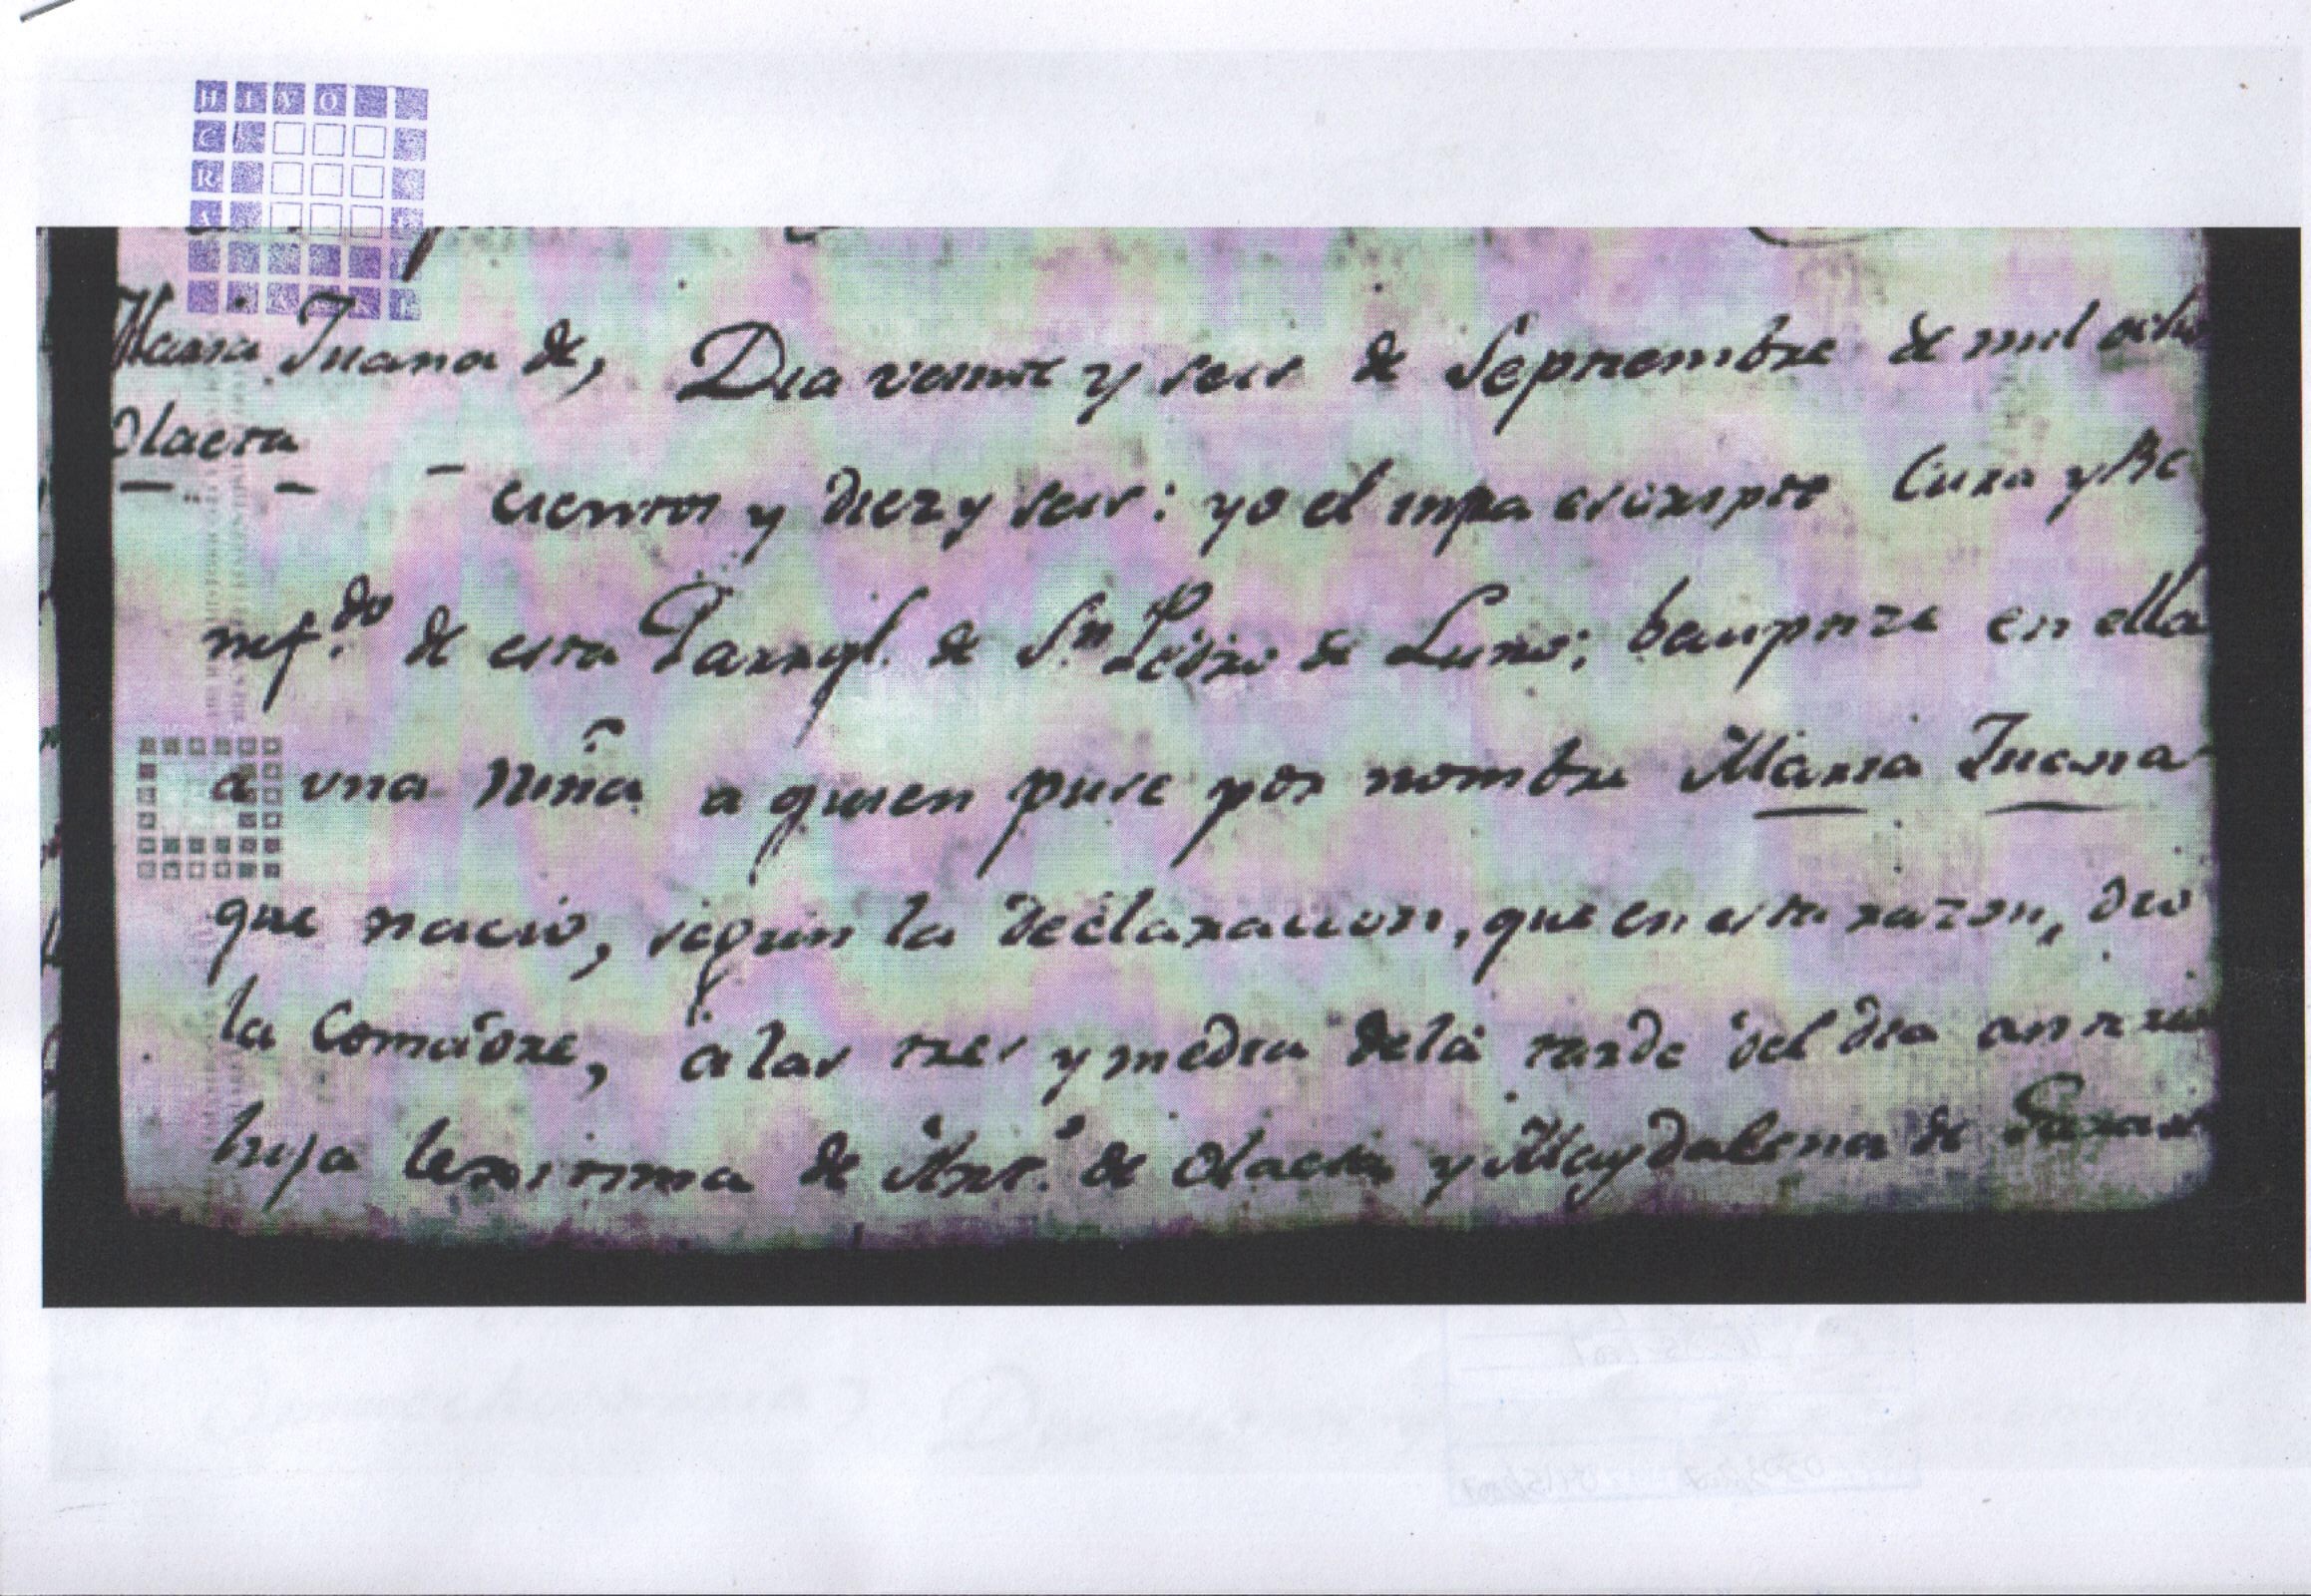 H I V O
C
R
A
Maria Juana de,
Olaeta
Dia veinte y seis de Septiembre de mil ocho
cientos y diez y seis: yo el infra escripto Cura y Be
nef.do de esta Parroql. de Sn. Pedro de Luno; bauptize en ella
a una Niña a quien puse por nombre Maria Juana
que nacio, segun la declaracion, que en esta razon, dio
la Comadre, a las tres y media dela tarde del dia
hija lexitima de Ant.o de Olaeta y Magdalena de